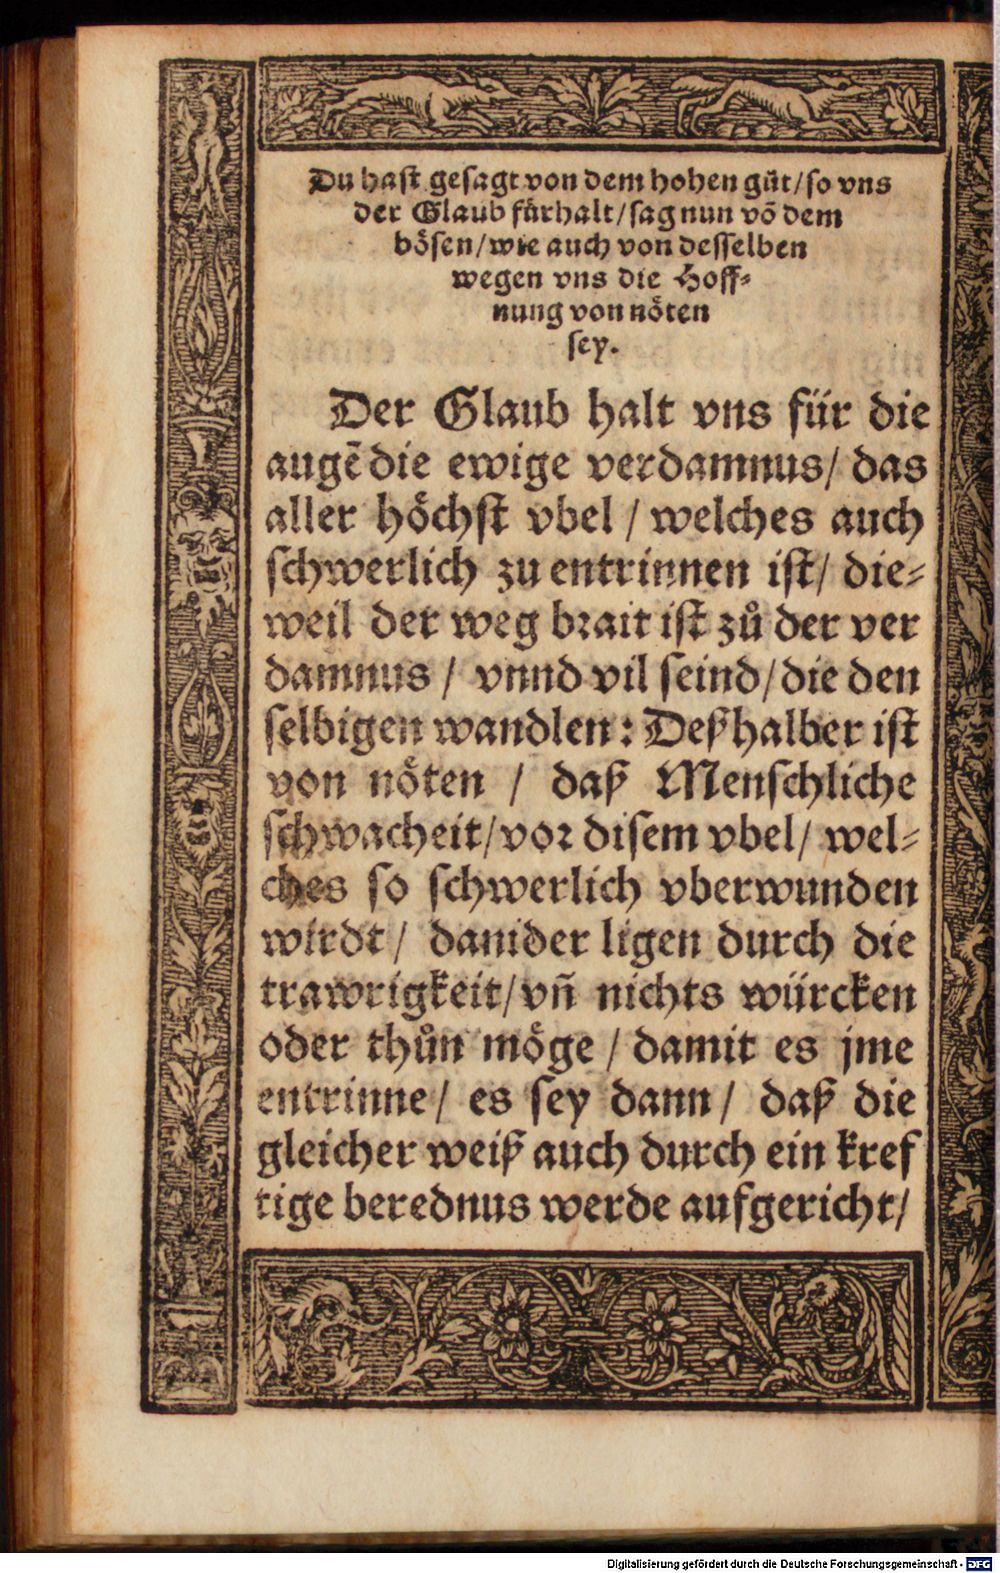 Du hast gesagt von dem hohen gůt/ so vns
der Glaub fürhalt/ sag nun võ dem
bösen/ wie auch von desselben
wegen vns die Hoff⸗
nung von nöten
sey.
Der Glaub halt vns für die
augẽ die ewige verdamnus/ das
aller höchst vbel / welches auch
schwerlich zu entrinnen ist/ die⸗
weil der weg brait ist zů der ver
damnus / vnnd vil seind/ die den
selbigen wandlen: Deßhalber ist
von nöten / daß Menschliche
schwacheit/ vor disem vbel/ wel⸗
ches so schwerlich vberwunden
wirdt / danider ligen durch die
trawrigkeit/ vñ nichts würcken
oder thůn möge / damit es jme
entrinne/ es sey dann/ daß die
gleicher weiß auch durch ein kref
tige berednus werde aufgericht/
Digitalisierung gefördert durch die Deutsche Forschungsgemeinschaft - DFG